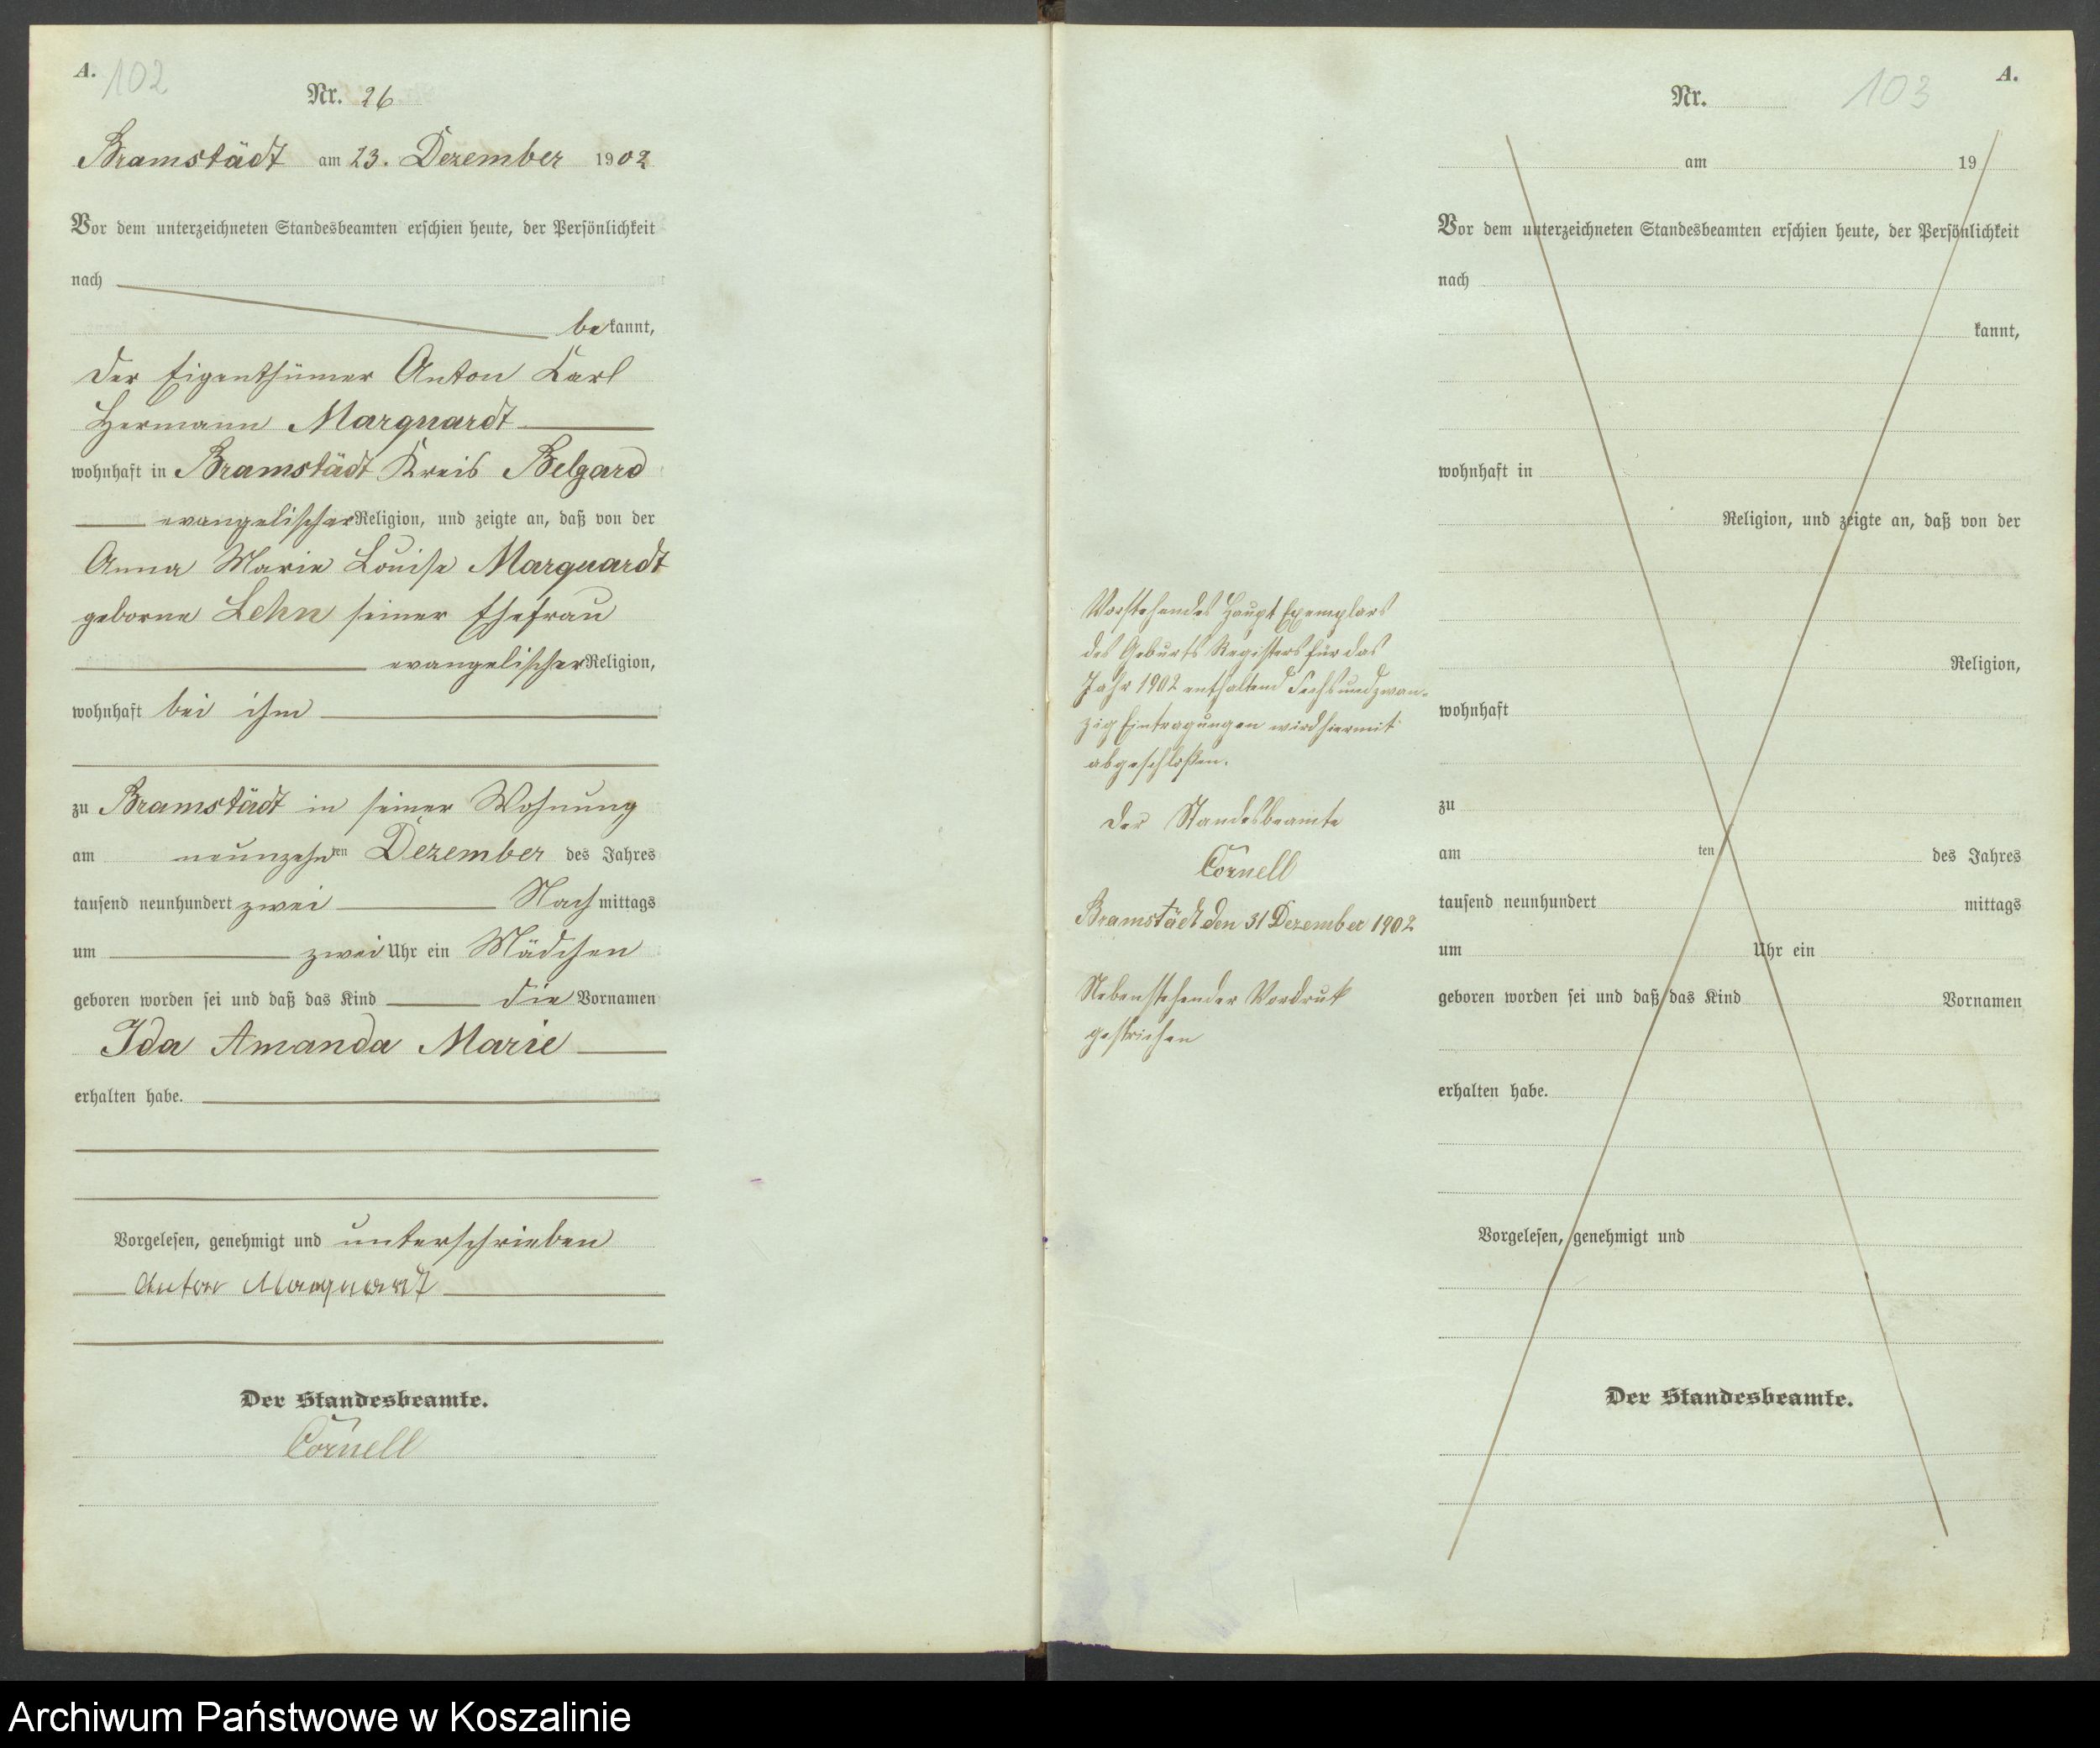 A. 102
Nr. 26
Bramstädt am 23. Dezember 1902
Vor dem unterzeichneten Standesbeamten erschien heute, der Persönlichkeit
nach
bekannt,
der Eigenthümer Anton Karl
Hermann Marquardt
wohnhaft in Bramstädt Kreis Belgard
evangelischer Religion, und zeigte an, daß von der
Anna Marie Louise Marquardt
geborne Lehn seiner Ehefrau
evangelischer Religion,
wohnhaft bei ihm
zu Bramstädt in seiner Wohnung
am neunzehnten Dezember des Jahres
tausend neunhundert zwei Nachmittags
um zwei Uhr ein Mädchen
geboren worden sei und daß das Kind die Vornamen
Ida Amanda Marie
erhalten habe.
Vorgelesen, genehmigt und unterschrieben
Anton Marquardt
Der Standesbeamte.
Cornell
Vorstehendes Haupt Exemplars
des Geburts Registers für das
Jahr 1902 enthaltend Sechsundzwan-
zig Eintragungen wird hiermit
abgeschlossen.
Der Standesbeamte
Cornell
Bramstädt den 31 Dezember 1902
Nebenstehender Vordruk
gestrichen
A.
Nr. 103
am 19
Vor dem unterzeichneten Standesbeamten erschien heute, der Persönlichkeit
nach
kannt,
wohnhaft in
Religion, und zeigte an, daß von der
Religion,
wohnhaft
zu
am ten des Jahres
tausend neunhundert mittags
um Uhr ein
geboren worden sei und daß das Kind Vornamen
erhalten habe.
Vorgelesen, genehmigt und
Der Standesbeamte.
Archiwum Państwowe w Koszalinie